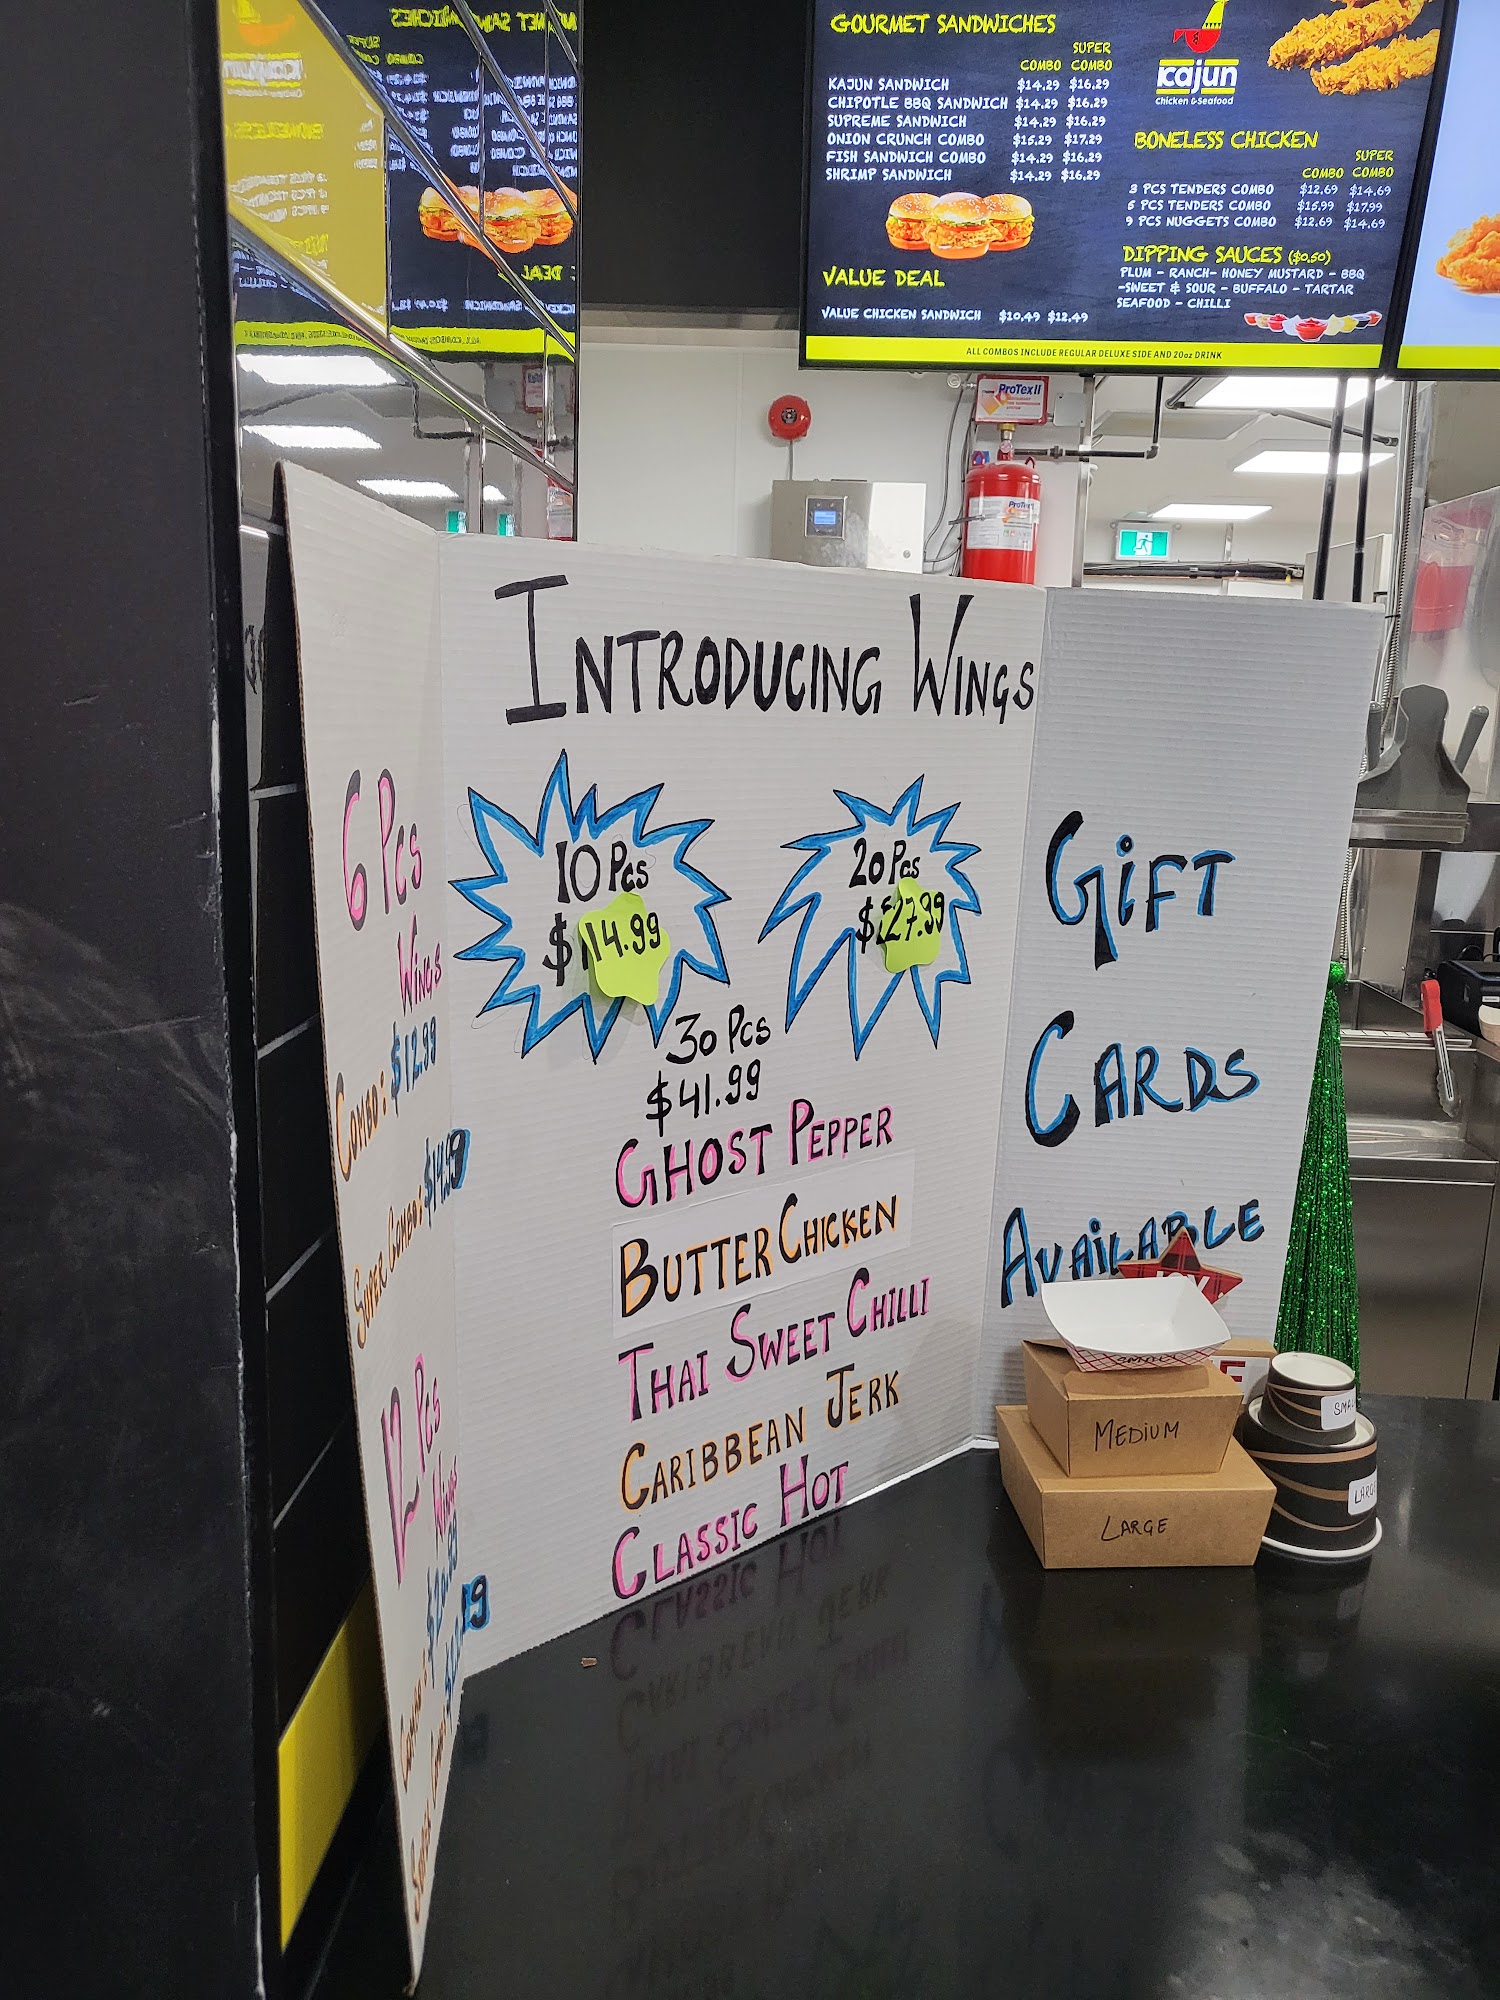 GOURMET SANDWICHES
COMBO SUPER COMBO
KAJUN SANDWICH $14.29 $16.29
CHIPOTLE BBQ SANDWICH $14.29 $16.29
SUPREME SANDWICH $14.29 $16.29
ONION CRUNCH COMBO $15.29 $17.29
FISH SANDWICH COMBO $14.29 $16.29
SHRIMP SANDWICH $14.29 $16.29
VALUE DEAL
VALUE CHICKEN SANDWICH $10.49 $12.49
kajun
Chicken & Seafood
BONELESS CHICKEN
COMBO SUPER COMBO
3 PCS TENDERS COMBO $12.69 $14.69
5 PCS TENDERS COMBO $15.99 $17.99
9 PCS NUGGETS COMBO $12.69 $14.69
DIPPING SAUCES ($0.50)
PLUM - RANCH- HONEY MUSTARD - BBQ
-SWEET & SOUR - BUFFALO - TARTAR
SEAFOOD - CHILLI
ALL COMBOS INCLUDE REGULAR DELUXE SIDE AND 20oz DRINK
ProTex II
ProTex II
INTRODUCING WINGS
6 Pcs
WINGS
COMBO: $12.99
SUPER COMBO: $14.99
12 Pcs
WINGS
COMBO:
SUPER COMBO:
10 Pcs
$14.99
20 Pcs
$27.99
30 Pcs
$41.99
GHOST PEPPER
BUTTER CHICKEN
THAI SWEET CHILLI
CARIBBEAN JERK
CLASSIC HOT
GIFT
CARDS
AVAILABLE
JOY
SMALL
MEDIUM
LARGE
SMALL
LARGE